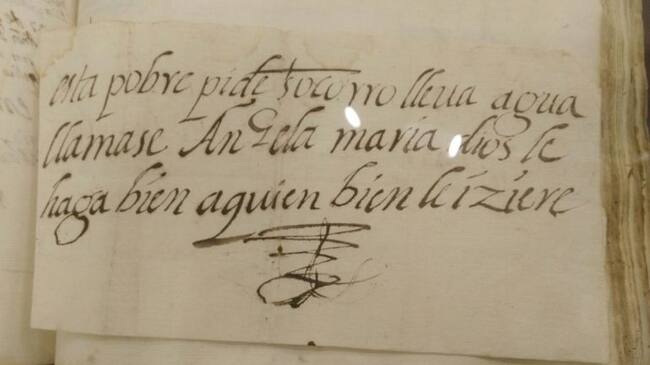 esta pobre pide socorro lleva agua
llamase Angela maria dios le
haga bien aquien bien le iziere